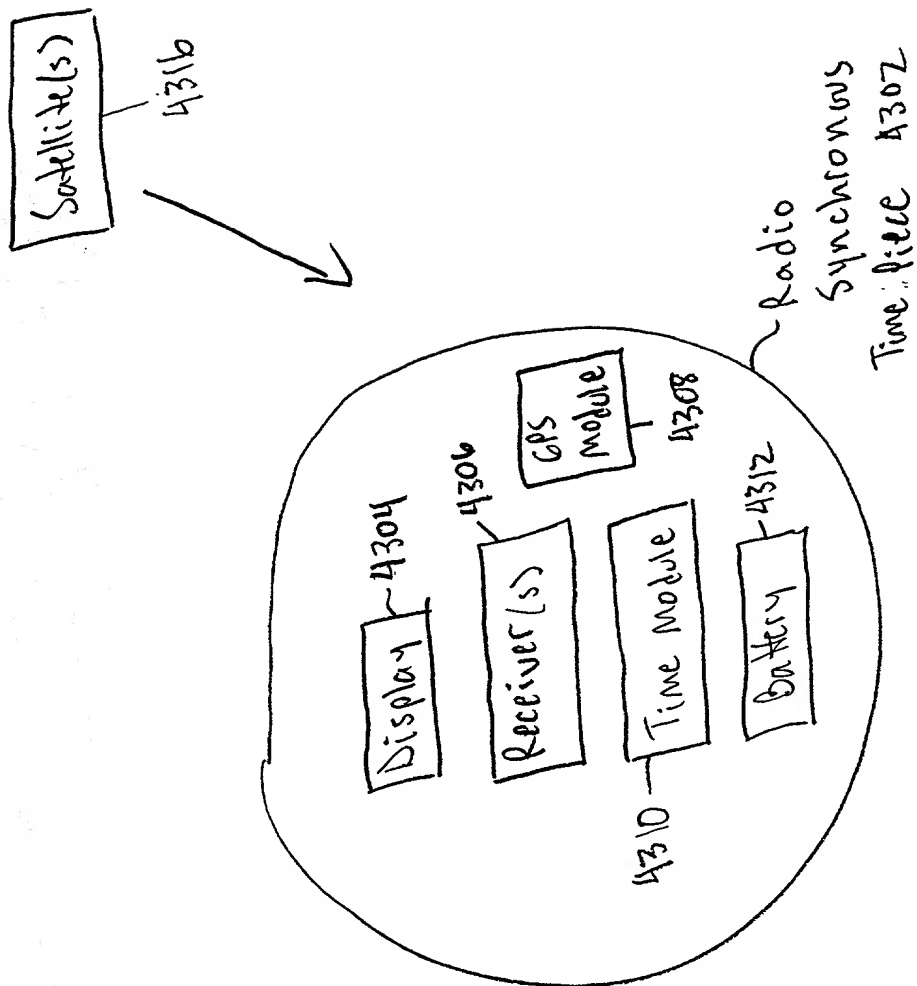 Satellite(s)
4316
Display
4304
Receiver(s)
4306
GPS
Module
4308
Time Module
4310
Battery
4312
Radio
Synchronous
Time Piece 4302